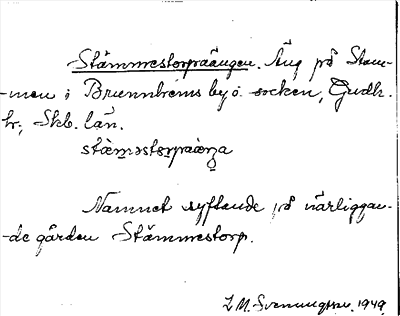 Stämmestorpaängen. Äng på Stom-
-men i Brunnhems by o. socken, Gudh.
hr, Skb. län.
Namnet syftande på närliggan-
-de gården Stämmestorp.
L M. Svenungsson. 1949